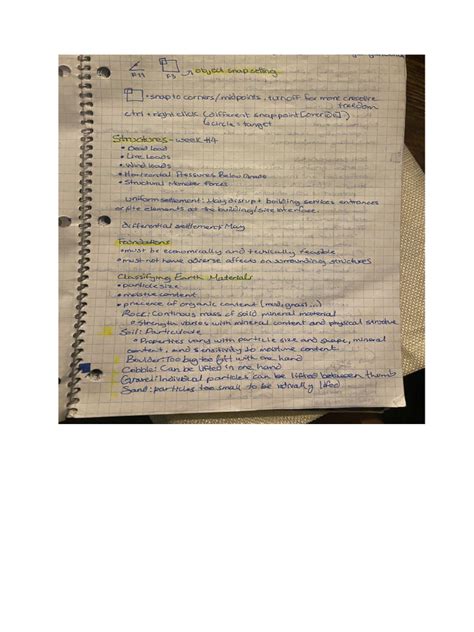 F11 F3 → object snap setting
• snap to corners/midpoints, turn off for more creative
freedom
ctrl + right click (different snap point [override])
circle: target
Structures - week #4
• Dead Load
• Live Loads
• Wind Loads
• Horizontal Pressures Below Grade
• Structural Member Forces
uniform settlement: May disrupt building services entrances
or site elements at the building/site interface.
differential settlement: May
Foundations
• must be economically and technically feasible
• must not have adverse affects on surrounding structures
Classifying Earth Materials
• particle size
• moisture content
• presence of organic content
Rock: Continous mass of solid mineral material
• Strength varies with mineral content and physical structure
Soil: Particulate
• Properties vary with particle size and shape, mineral
content, and sensitivity to moisture content.
Boulder: Too big to lift with one hand
Cobble: Can be lifted in one hand
Gravel: Individual particles can be lifted between thumb
Sand: particles too small to be individually lifted